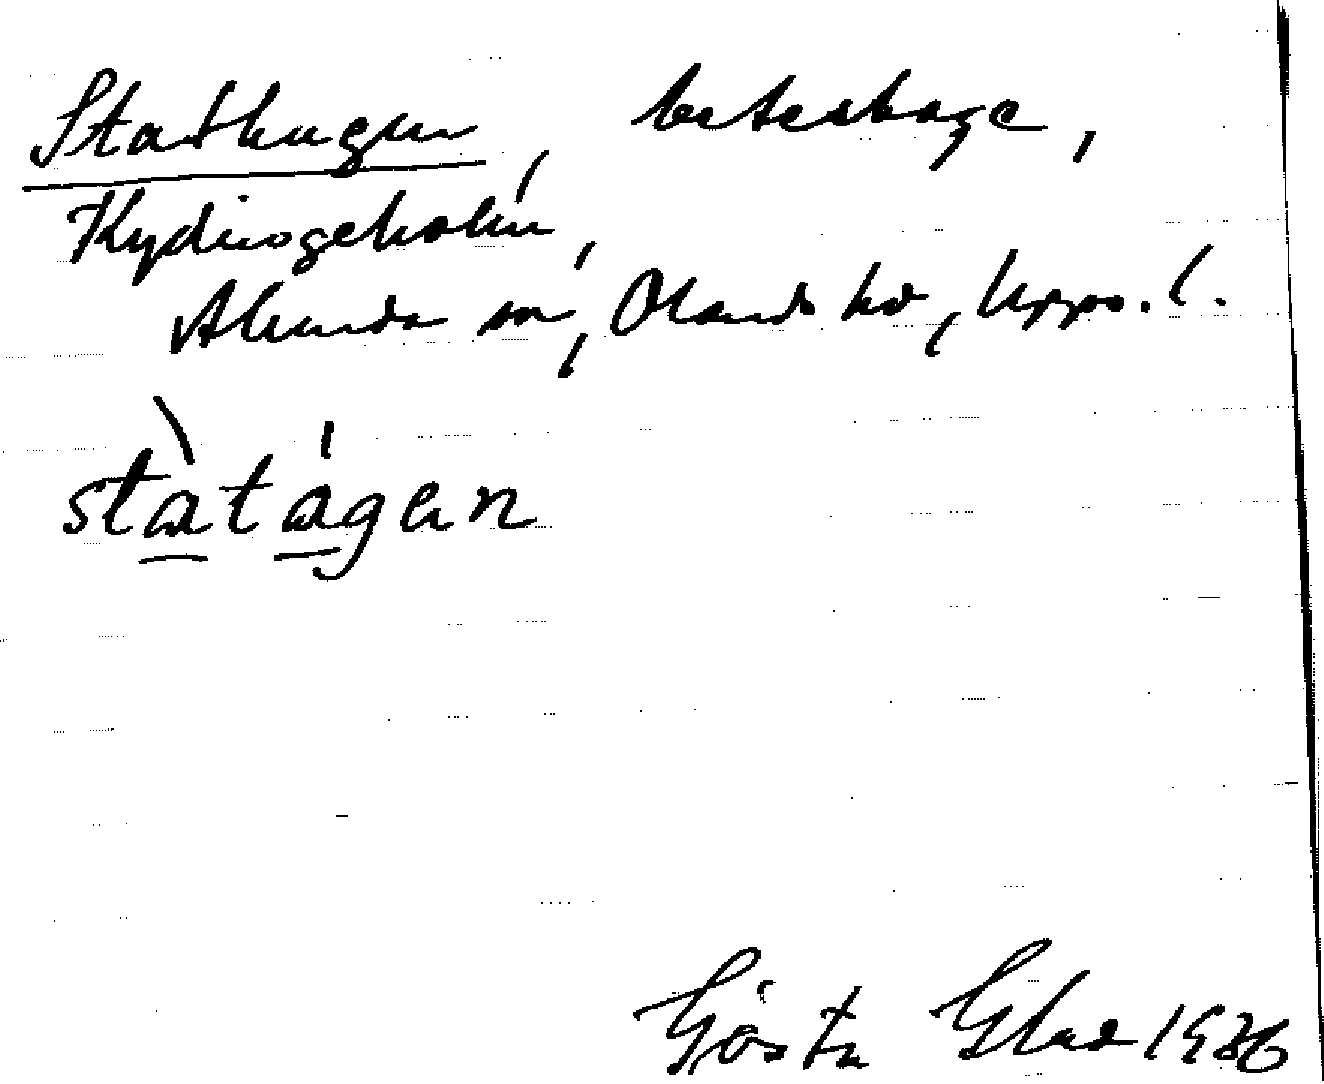 Stathagen, beteshage,
Kydingeholm,
Alunda sn, Olands hd, Upps. l.
stàtágen
Gösta Glad 1936